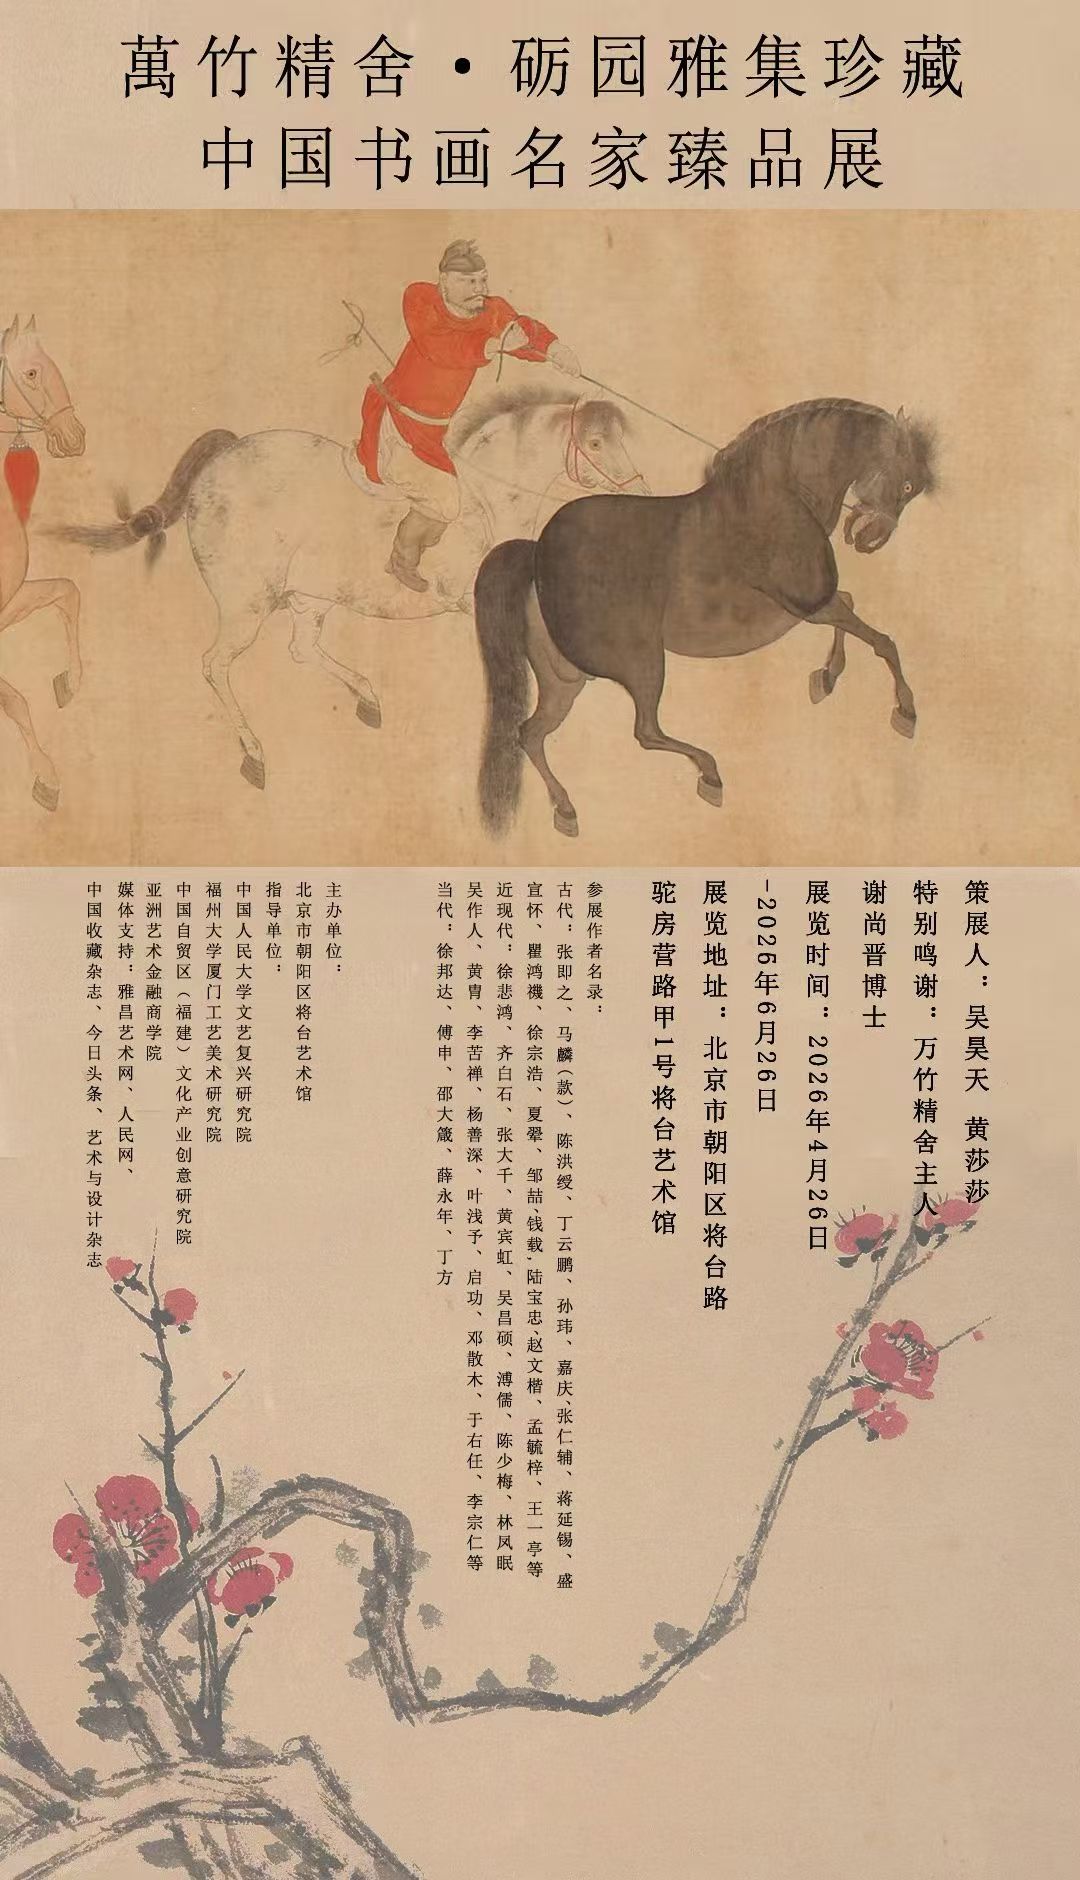 萬竹精舍·砺园雅集珍藏
中国书画名家臻品展
策展人：吴昊天 黄莎莎
特别鸣谢：万竹精舍主人
谢尚晋博士
展览时间：2026年4月26日
-2026年6月26日
展览地址：北京市朝阳区将台路
驼房营路甲1号将台艺术馆
参展作者名录：
古代：张即之、马麟（款）、陈洪绶、丁云鹏、孙玮、嘉庆、张仁辅、蒋延锡、盛
宣怀、瞿鸿禨、徐宗浩、夏翚、邹喆、钱载，陆宝忠、赵文楷、孟毓梓、王一亭等
近现代：徐悲鸿、齐白石、张大千、黄宾虹、吴昌硕、溥儒、陈少梅、林凤眠
吴作人、黄胄、李苦禅、杨善深、叶浅予、启功、邓散木、于右任、李宗仁等
当代：徐邦达、傅申、邵大箴、薛永年、丁方
主办单位：
北京市朝阳区将台艺术馆
指导单位：
中国人民大学文艺复兴研究院
福州大学厦门工艺美术研究院
中国自贸区（福建）文化产业创意研究院
亚洲艺术金融商学院
媒体支持：雅昌艺术网、人民网、
中国收藏杂志、今日头条、艺术与设计杂志